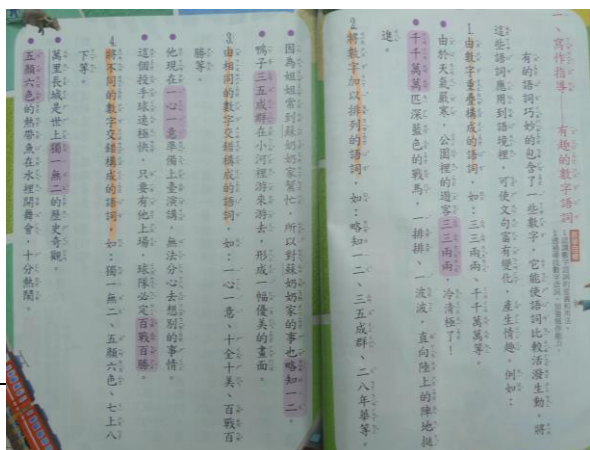 一、寫作指導——有趣的數字語詞
有的語詞巧妙的包含了一些數字，它能使語詞比較活潑生動。將
這些語詞應用到語境裡，可使文句富有變化，產生情趣，例如：
1.由數字重疊構成的語詞，如：三三兩兩、千千萬萬等。
由於天氣嚴寒，公園裡的遊客三三兩兩，冷清極了！
千千萬萬匹深藍色的戰馬，一排排，一波波，直向陸上的陣地挺
進。
2.將數字加以排列的語詞，如：略知一二、三五成群、二八年華等。
因為姐姐常到蘇奶奶家幫忙，所以對蘇奶奶家的事也略知一二。
鴨子三五成群在小河裡游來游去，形成一幅優美的畫面。
3.由相同的數字交錯構成的語詞，如：一心一意、十全十美、百戰百
勝等。
他現在一心一意準備上臺演講，無法分心去想別的事情。
這個投手球速極快，只要有他上場，球隊必定百戰百勝。
4.將不同的數字交錯構成的語詞，如：獨一無二、五顏六色、七上八
下等。
萬里長城是世上獨一無二的歷史奇觀。
五顏六色的熱帶魚在水裡開舞會，十分熱鬧。